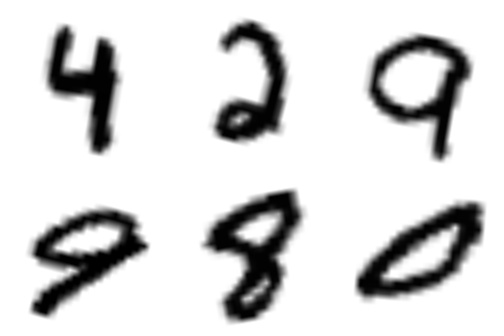 4 2 9
9 8 0